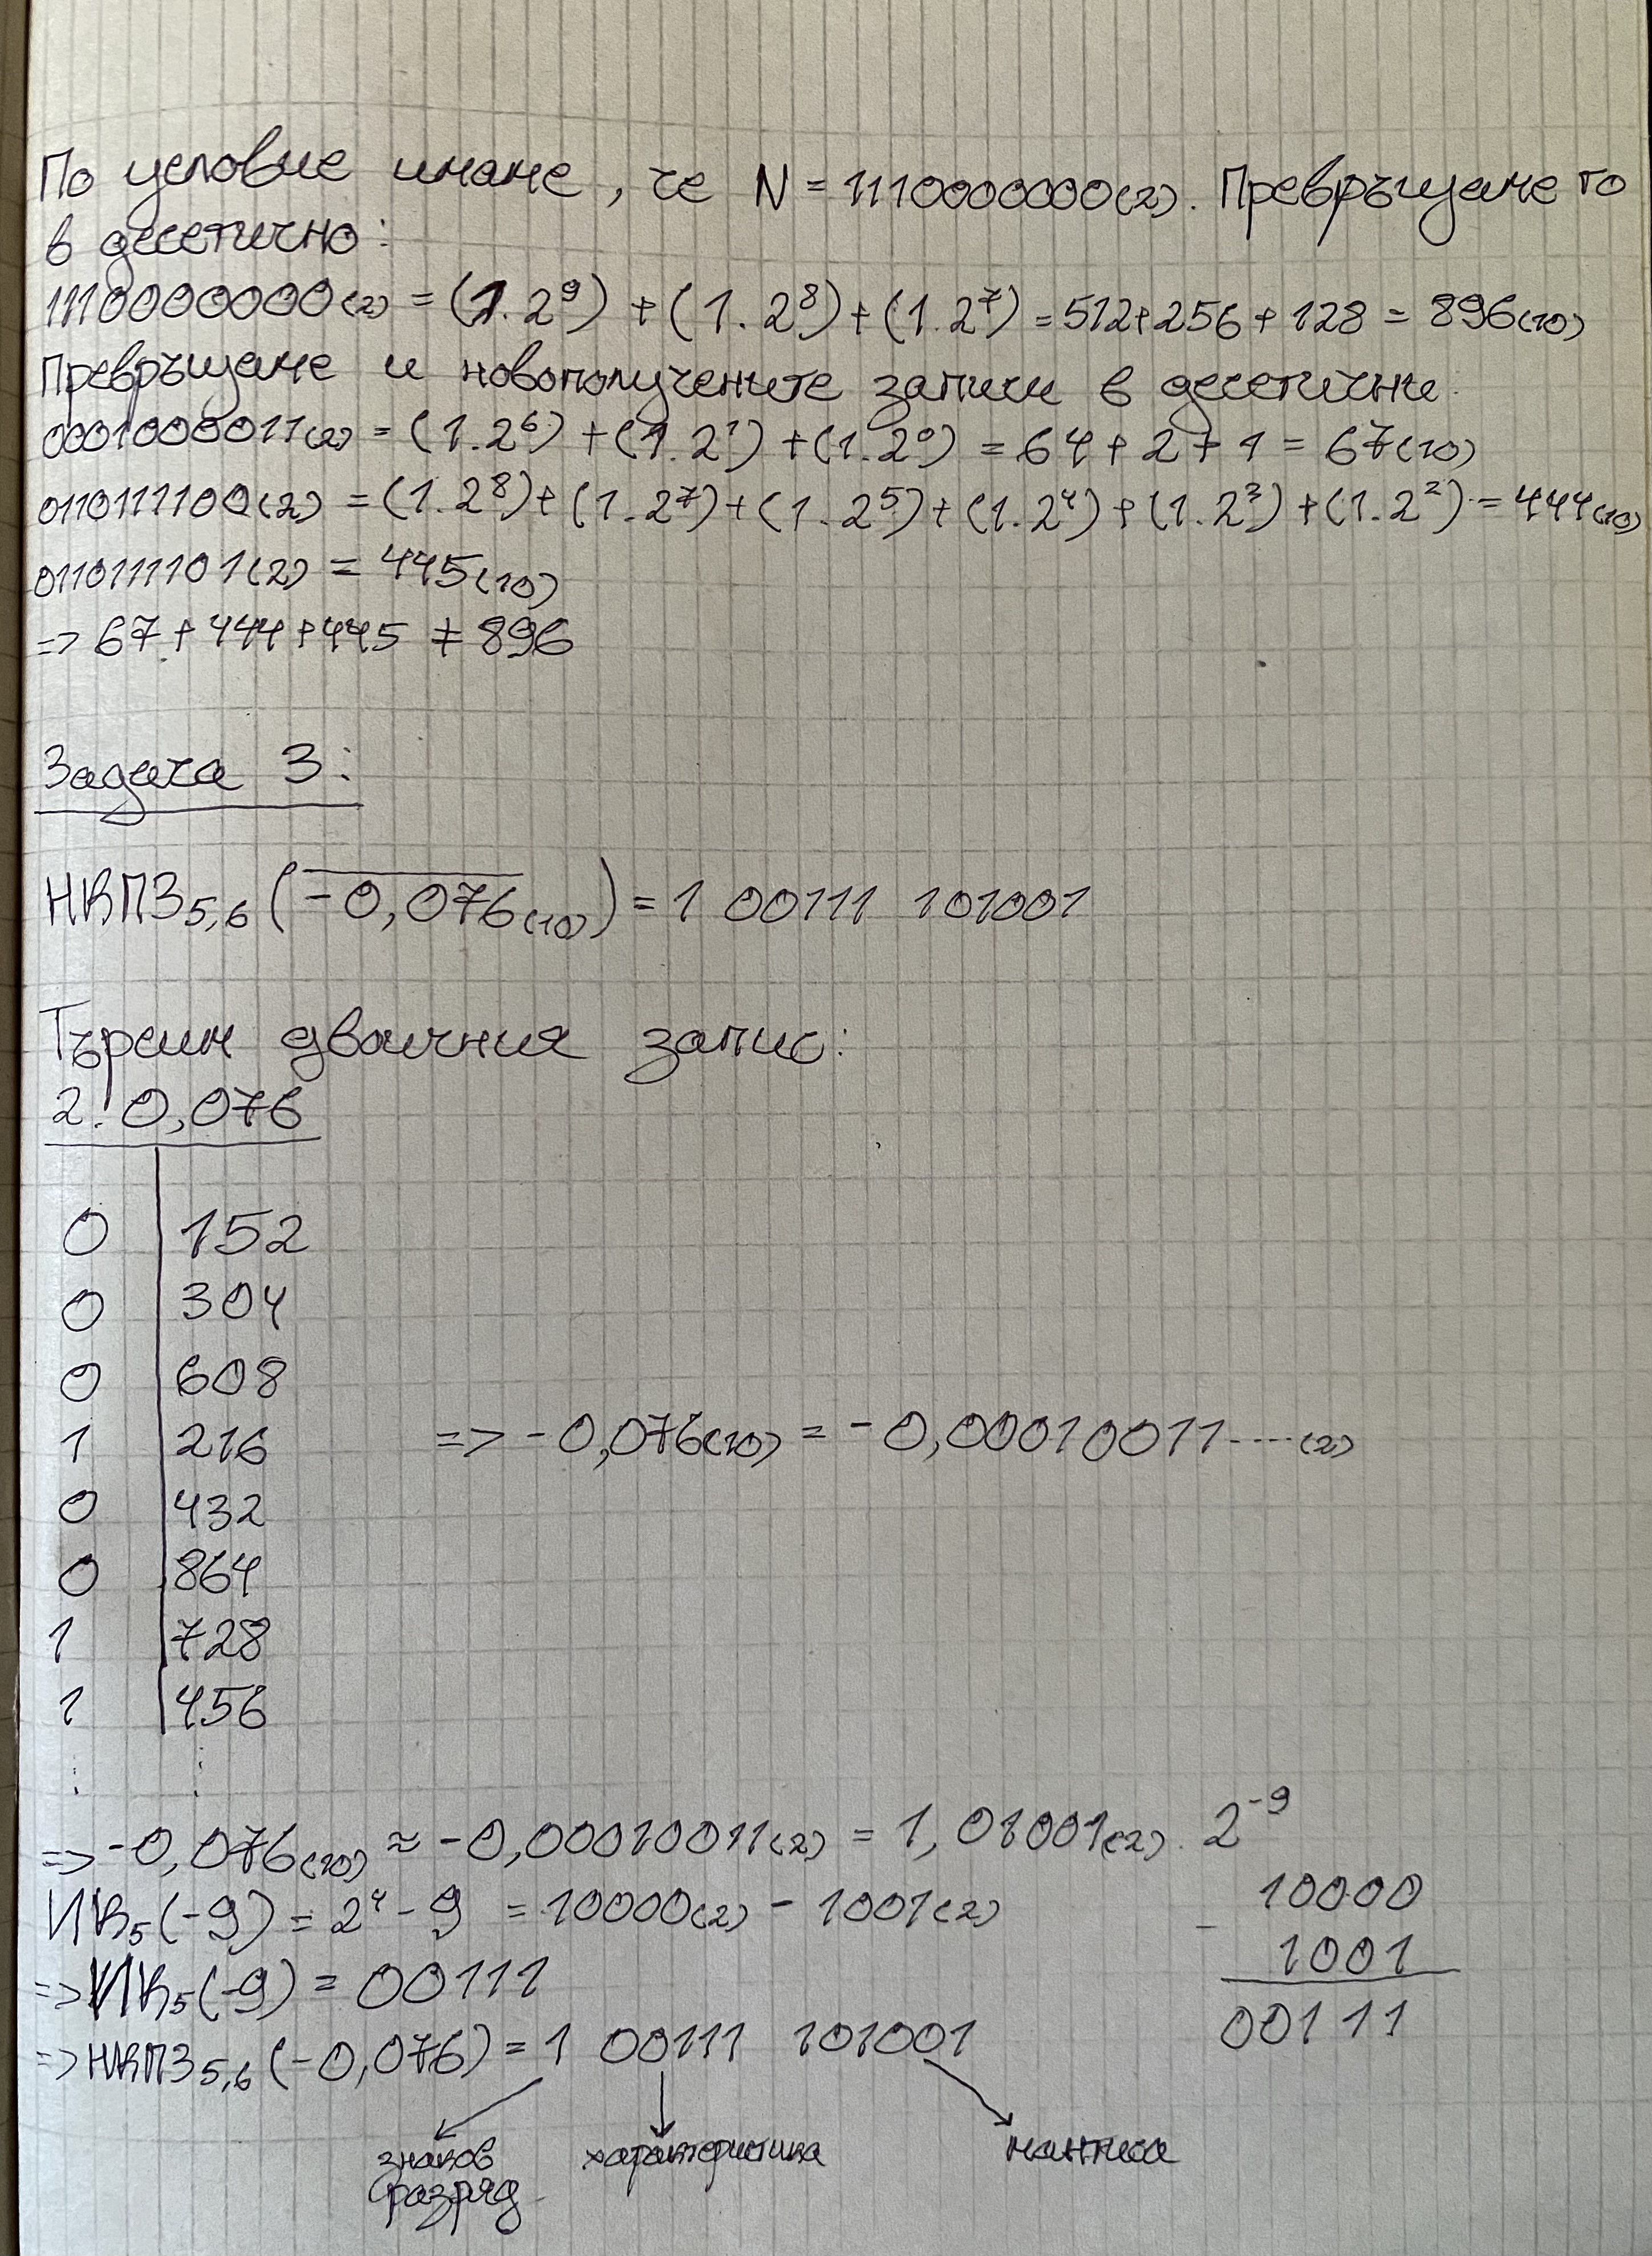 По условие имаме, че N = 1110000000(2). Превръщаме го
в десетично:
1110000000(2) = (1.2⁹) + (1.2⁸) + (1.2⁷) = 512+256+128 = 896(10)
Превръщаме и новополучените записи в десетични:
0001000011(2) = (1.2⁶) + (1.2¹) + (1.2⁰) = 64 + 2 + 1 = 67(10)
0110111100(2) = (1.2⁸) + (1.2⁷) + (1.2⁵) + (1.2⁴) + (1.2³) + (1.2²) = 444(10)
0110111101(2) = 445(10)
=> 67 + 444 + 445 ≠ 896
Задача 3:
НКПЗ5,6 (-0,076(10)) = 1 00111 101001
Търсим двоичния запис:
2. 0,076
0 | 152
0 | 304
0 | 608
1 | 216 => -0,076(10) = -0,00010011....(2)
0 | 432
0 | 864
1 | 728
1 | 456
⋮ ⋮
=> -0,076(10) ≈ -0,00010011(2) = 1,01001(2) . 2⁻⁹
ИК5(-9) = 2⁴ - 9 = 10000(2) - 1001(2)
10000
- 1001
00111
=> ИК5(-9) = 00111
=> НКПЗ5,6 (-0,076) = 1 00111 101001
знаков разряд характеристика мантиса